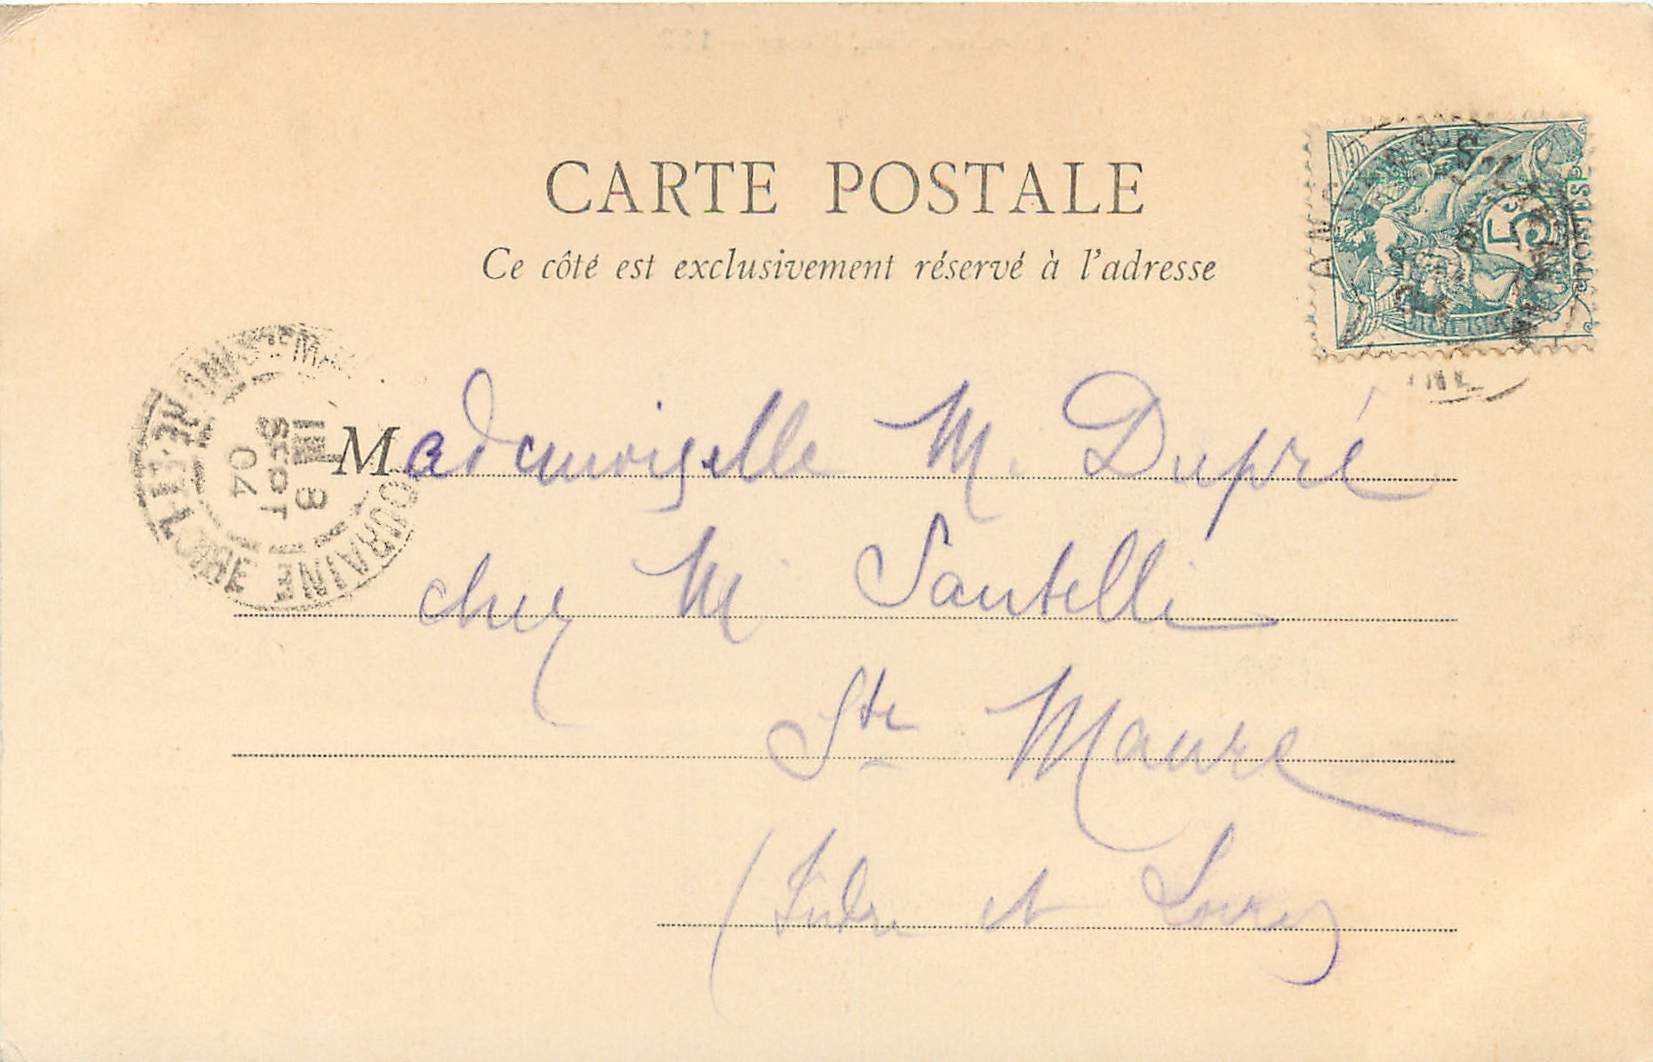 CARTE POSTALE
Ce côté est exclusivement réservé à l'adresse
5
POSTES
Mademoiselle M. Dupré
chez M Santelli
Ste Maure
(Indre et Loire)
STE MAURE DE TOURAINE
INDRE ET
8
SEPT
04